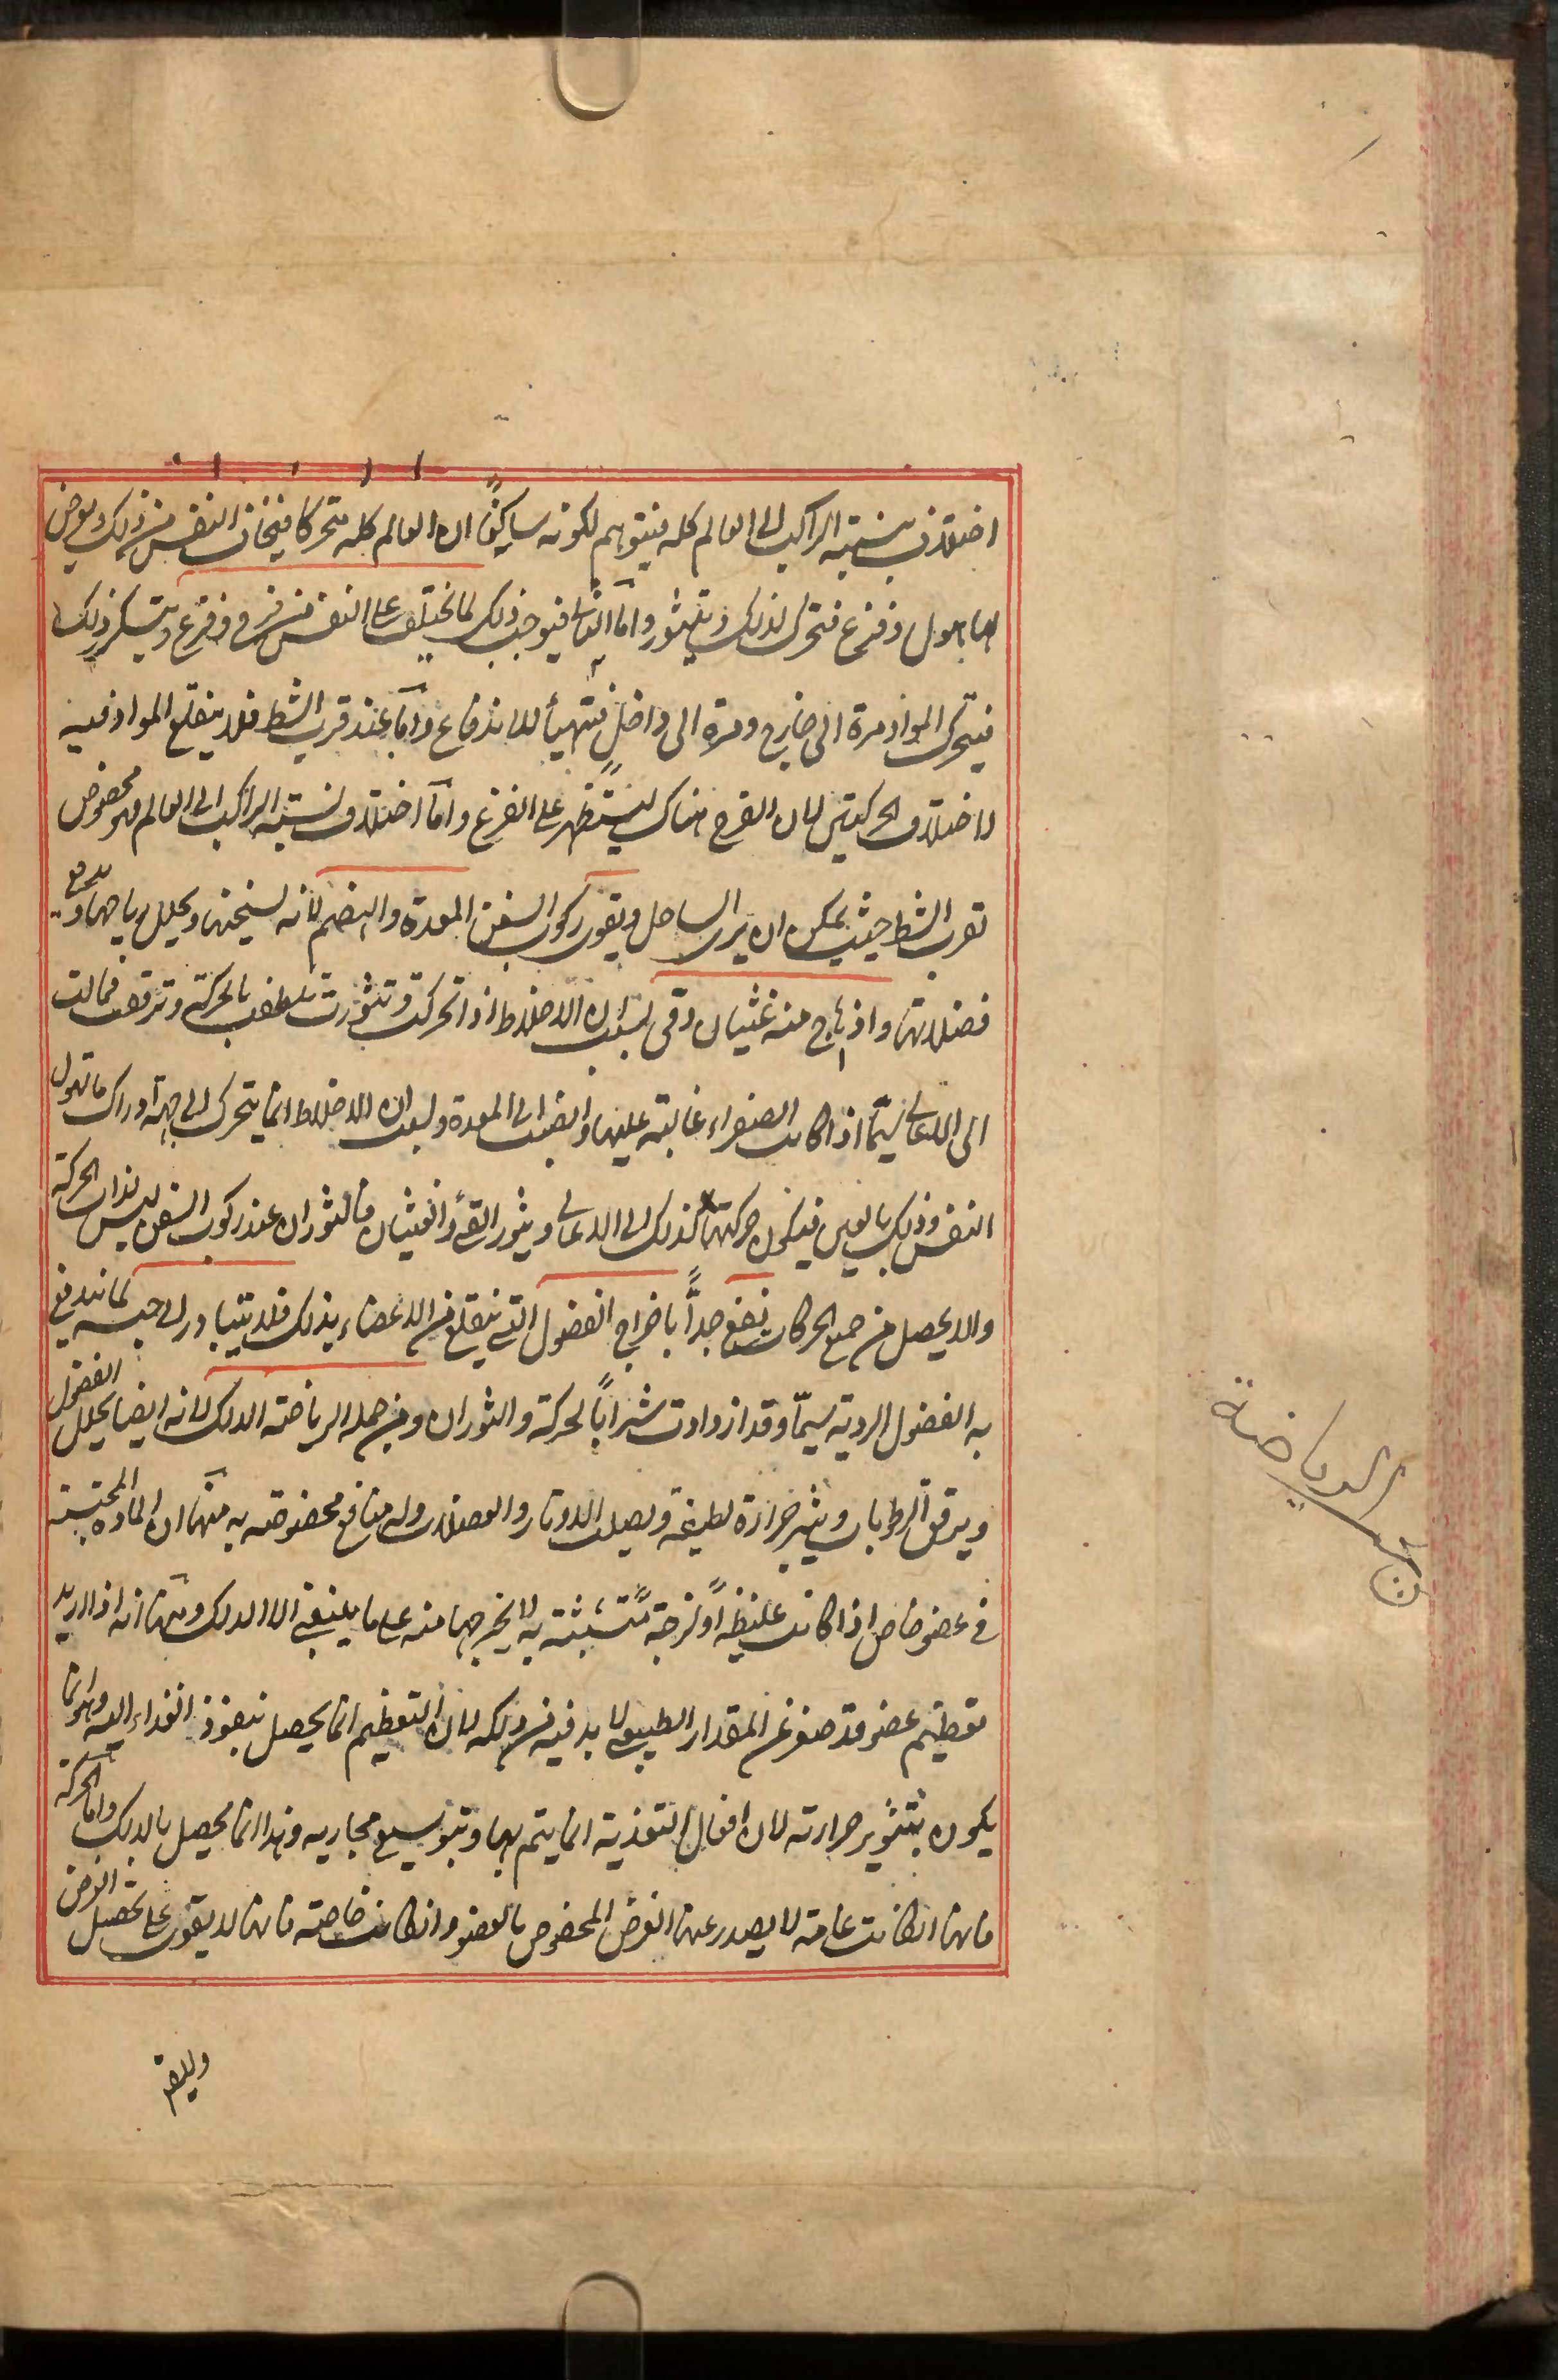 اختلاف نسبته الراكب الى العالم كله فيتوهم لكونه ساكنًا ان العالم كله متحركا فيخاف النفس من ذلك ويعرض
لها هول وفزع فتحرك لذلك وتثور واما الثالث فيوجب ذلك لما يختلف على النفس من فرح وفزع ويتكرر ذلك
فيتحرك المواد مرة الى خارج ومرة الى داخل فتتهيأ للاندفاع واما عند قرب الشط فلا ينقلع المواد فيه
لاختلاف الحركتين لان الفرح هناك ليستظهر على الفزع واما اختلاف نسبته الراكب الى العالم فهو مخصوص
بقرب الشط حيث يمكن ان يرى الساحل ويقوى ركوب السفن المعدة والهضم لانه يسخنها ويحلل رياحها ويدفع
فضلاتها واذا هاج منه غثيان وقى بسبب ان الاخلاط اذا تحركت وتثورت تلطف بالحركة وترقق فمالت
الى الاعالى سيمّا اذا كانت الصفراء غالبته عليها وانصبت الى المعدة ولسبب ان الاخلاط انما يتحرك الى جهة ادراك ما تهول
النفس وذلك بالعين فيكون حركتها كذلك الى الاعالى ويثور القئ والغثيان فالثوران عند ركوب السفن ليس لذات الحركة
والا يحصل من جميع الحركات نفع جدًّا باخراج الفضول التى ينقلع من الاعضاء بذلك فلا يتبادر الى حبسه لما يندفع
به الفضول الردية سيمّا وقد ازدادت شرابًا لحركة والثوران ومن جملة الرياضته الدلك لانه ايضا يحلل الفضول
ويرقق الرطوبات ويثير حرارة لطيفة ويصلب الاوتار والعضلات وله منافع مخصوصته به منها ان المادة المحتبسته
فى عضو خاص اذا كانت غليظةً او لزجة متشبثته به لا يخرجها منه على ما ينبغى الا الدلك ومنها انه اذا اريد
تعظيم عضو قد صغر عن المقدار الطبيعى لا بد فيه من دلكه لان التعظيم انما يحصل بنفوذ الغذاء اليه وهو انما
يكون بتثوير حرارته لان افعال التغذية انما يتم بها وبتوسيع مجاريه وهذا انما يحصل بالدلك واما الحركة
فانها ان كانت عامة لا يصدر عنها الغرض المخصوص بالعضو وان كانت خاصته فانها لا يقوى على تحصيل الغرض
الرياضة